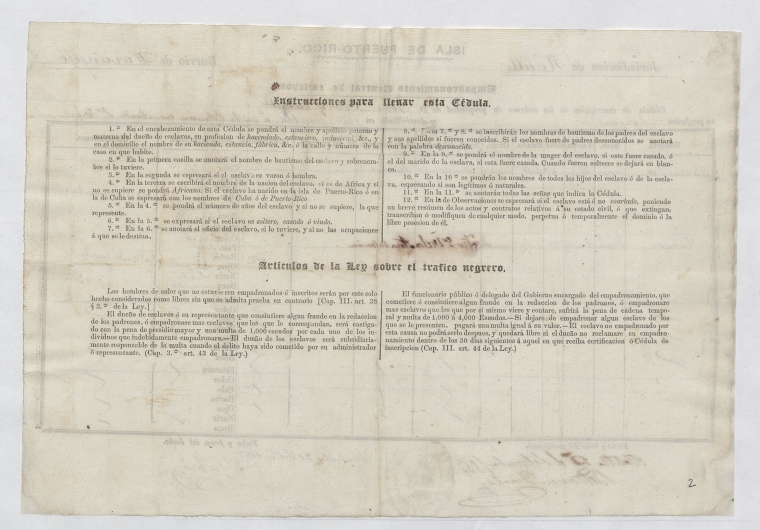 Instrucciones para llenar esta Cédula.
1.ª En el encabezamiento de esta Cédula se pondrá el nombre y apellido paterno y
materno del dueño de esclavos, su profesion de hacendado, estanciero, industrial, &c., y
en el domicilio el nombre de su hacienda, estancia, fábrica, &c. ó la calle y número de la
casa en que habite.
2.ª En la primera casilla se anotará el nombre de bautismo del esclavo y sobrenom-
bre si lo tuviere.
3.ª En la segunda se espresará si el esclavo es varon ó hembra.
4.ª En la tercera se escribirá el nombre de la nacion del esclavo, si es de Africa y si
no se supiere se pondrá Africano. Si el esclavo ha nacido en la isla de Puerto-Rico ó en
la de Cuba se espresará con los nombres de Cuba ó de Puerto-Rico
5.ª En la 4.ª se pondrá el número de años del esclavo y si no se supiere, la que
represente.
6.ª En la 5.ª se expresará si el esclavo es soltero, casado ó viudo.
7.ª En la 6.ª se anotará el oficio del esclavo, si lo tuviere, y si no las ocupaciones
á que se le destina.
8.ª En la 7.ª y 8.ª se inscribirán los nombres de bautismo de los padres del esclavo
y sus apellidos si fueren conocidos. Si el esclavo fuere de padres desconocidos se anotará
con la palabra desconocido.
9.ª En la 9.ª se pondrá el nombre de la muger del esclavo, si este fuere casado, ó
el del marido de la esclava, si esta fuere casada. Cuando fueren solteros se dejará en blan-
co.
10.ª En la 10.ª se pondrán los nombres de todos los hijos del esclavo ó de la escla-
va, espresando si son legítimos ó naturales.
11.ª En la 11.ª se anotarán todas las señas que indica la Cédula.
12.ª En la de Observaciones se espresará si el esclavo está ó no coartado, poniendo
un breve resúmen de los actos y contratos relativos á su estado civil, ó que extingan,
transcriban ó modifiquen de cualquier modo, perpetua ó temporalmente el dominio ó la
libre posesion de él.
Artículos de la Ley sobre el trafico negrero.
Los hombres de color que no estuvieren empadronados ó inscritos serán por este solo
hecho considerados como libres sin que se admita prueba en contrario [Cap. III. art. 38
§ 3.º de la Ley.]
El dueño de esclavos ó su representante que consistiere algun fraude en la redaccion
de los padrones, ó empadronase mas esclavos que los que le correspondan, será castiga-
do con la pena de presidio mayor y una multa de 1,000 escudos por cada uno de los in-
dividuos que indebidamente empadronare.—El dueño de los esclavos será subsidiaria-
mente responsable de la multa cuando el delito haya sido cometido por su administrador
ó representante. (Cap. 3.º art. 43 de la Ley.)
El funcionario público ó delegado del Gobierno encargado del empadronamiento, que
cometiere ó consistiere algun fraude en la redaccion de los padrones, ó empadronare
mas esclavos que los que por si mismo viere y contare, sufrirá la pena de cadena tempo-
ral y multa de 1,000 á 4,000 Escudos.—Si dejare de empadronar algun esclavo de los
que se le presenten, pagará una multa igual á su valor.—El esclavo no empadronado por
esta causa no podrá serlo despues, y quedará libre si el dueño no reclamare su empadro-
namiento dentro de los 30 dias siguientes á aquel en que reciba certificacion ó Cédula de
inscripcion (Cap. III. art. 44 de la Ley.)
2